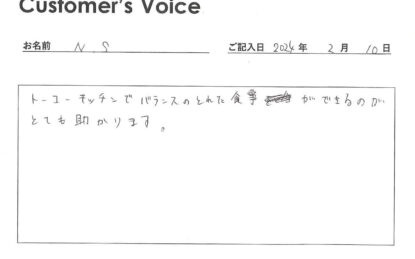 Customer's Voice
お名前 N.S ご記入日 2024年 2月 10日
トーコーキッチンでバランスのとれた食事ができるのが
とても助かります。